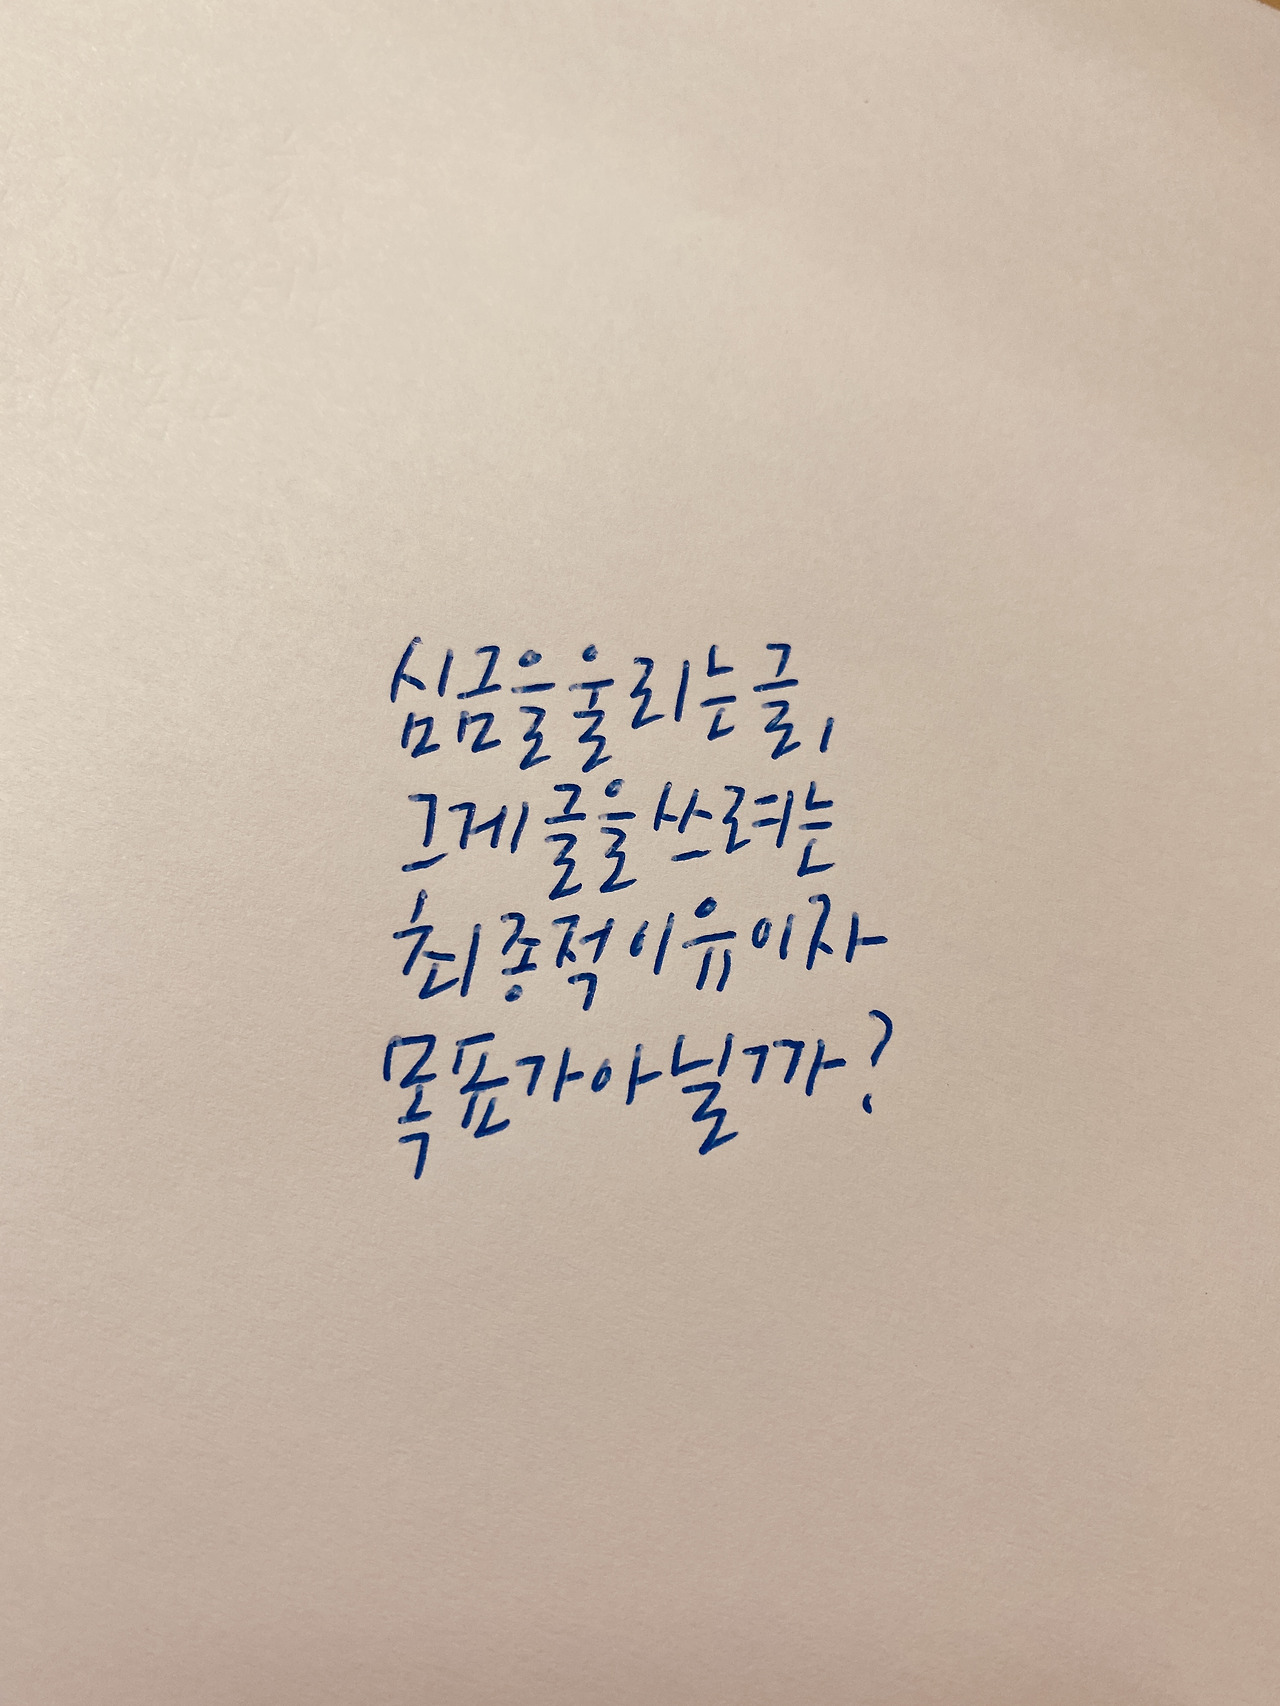 심금을 울리는 글,
그게 글을 쓰려는
최종적 이유이자
목표가 아닐까?